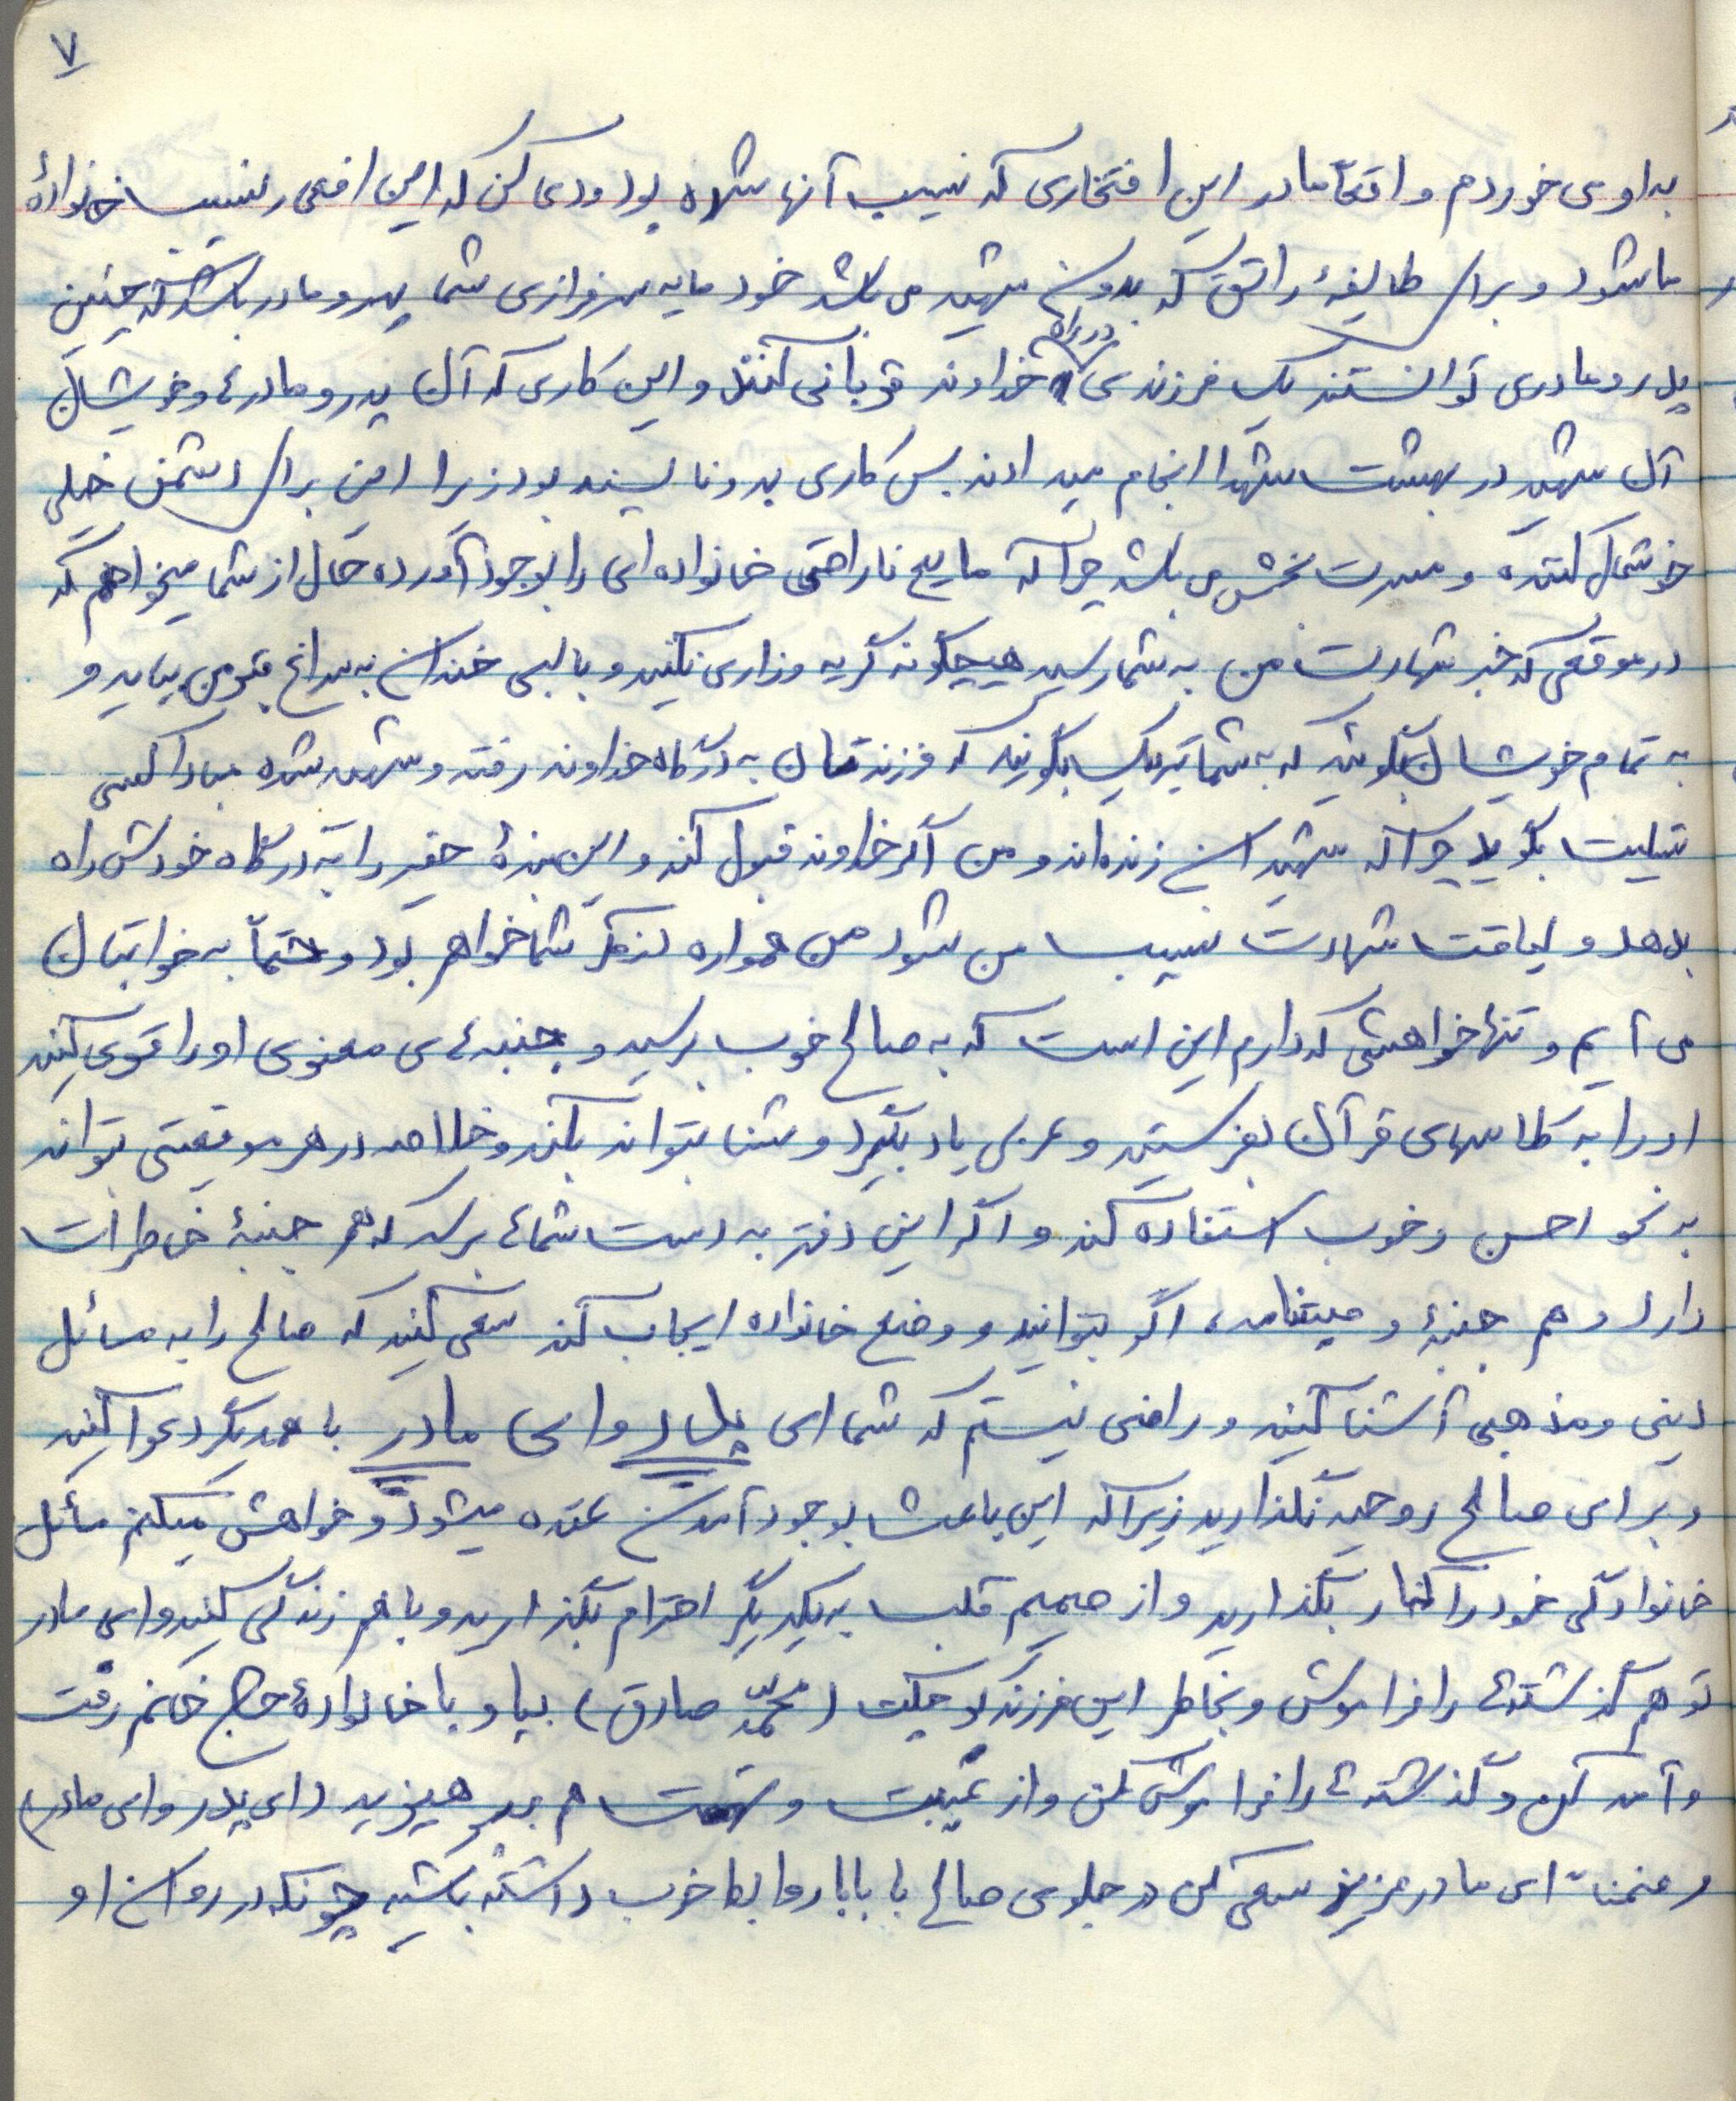 ۷
به اوی خوردم و واقعاً مادر این افتخاری که نسیب آنها شده بود و دعی کن که این افتخار نسیب خانوادهٔ
ما شود و برای طایفهٔ که بدون شهید می باشد خود مایه سرفرازی شما پدر و مادر باشد که چنین
پدر و مادری توانستند یک فرزندی در راه خداوند قربانی کنند و این کاری که آن پدر و مادر و خویشان
آن شهید در بهشت شهدا انجام میدادند بس کاری بد و ناپسند بود زیرا این برای دشمن خیلی
خوشحال کننده و مسرت بخش می باشد چرا که مایع ناراحتی خانواده ای را بوجود آورده حال از شما میخواهم که
در موقعی که خبر شهادت من به شما رسید هیچگونه گریه و زاری نکنید و با لبی خندان به سراغ قبر من بیاید و
به تمام خویشان بگوئید که به شما تبریک بگویند که فرزندتان به درگاه خداوند رفته و شهید شده مبادا کسی
تسلیت بگوید چرا که شهیدان زنده اند و من اگر خداوند قبول کند و این بندهٔ حقیر را به درگاه خودش راه
بدهد و لیاقت شهادت نسیب من شود من همواره نزد شما خواهم بود و حتماً به خوابتان
می آیم و تنها خواهشی که دارم این است که به صالح خوب برسید و جنبه ی معنوی او را قوی کنید
او را به کلاسهای قرآن بفرستید و عربی یاد بگیرد و شنا بتواند بکند و خلاصه در هر موقعیتی بتواند
به نحو احسن و خوب استفاده کند و اگر این دفتر به دست شما برسد که هم جنبهٔ خاطرات
دارد و هم جنبهٔ وصیتنامه، اگر بتوانید و وضع خانواده ایجاب کند سعی کنید که صالح را به مسائل
دینی و مذهبی آشنا کنید و راضی نیستم که شما ای پدر و ای مادر با همدیگر دعوا کنید
و برای صالح روحیه نگذارید زیرا که این باعث بوجود آمدن عقده میشود و خواهش میکنم مسائل
خانوادگی خود را کنار بگذارید و از صمیم قلب به یکدیگر احترام بگذارید و با هم زندگی کنید و ای مادر
تو هم گذشته را فراموش و بخاطر این فرزند کوچکت (محمّد صادق) بیا و با خانوادهٔ حاج خانم رفت
و آمد کن و گذشته را فراموش کن و از غیبت و تهمت هم بپرهیزید (ای پدر و ای مادر)
و ضمناً ای مادر عزیز سعی کن در جلوی صالح با بابا روابط خوب داشته باشید چونکه در روان او